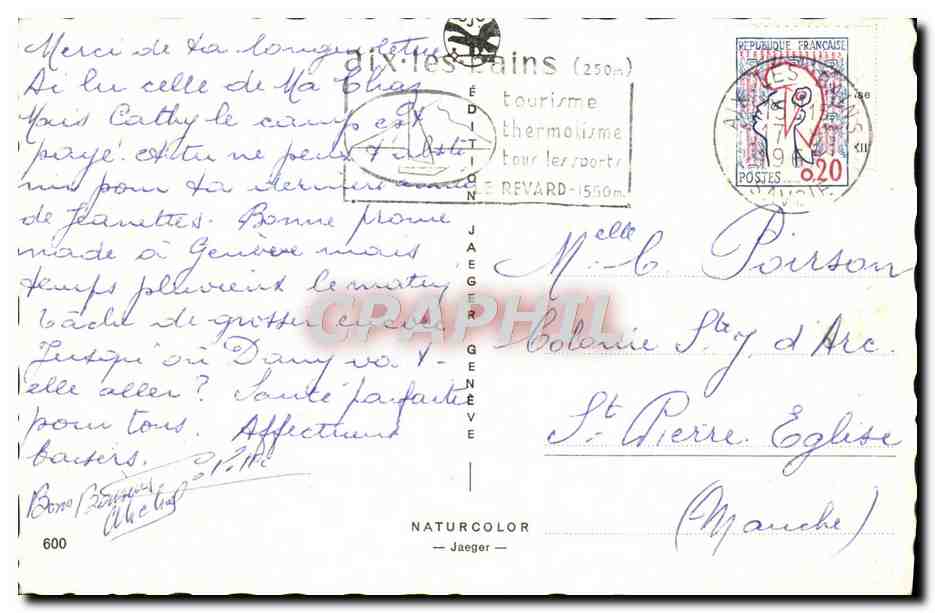 Merci de ta longue lettre
Ai lu celle de Ma
Mais Cathy le camp est
payé. et tu ne peux
pour ta dernière année
de Jeanettes. Bonne prome
nade à Genève mais
temps pluvieux le matin
tâche de grossir encore
Jusqu'où Dany va-t-
elle aller? Santé parfaite
pour tous. Affectueux
baisers.
Bons Baisers
Michel
600
aix·les·bains (250m)
tourisme
thermalisme
tous les sports
LE REVARD-1550m
REPUBLIQUE FRANÇAISE
0,20
POSTES
AIX LES BAINS
SAVOIE
ÉDITION JAEGER GENÈVE
Melle C. Poirson
Colonie Ste J. d'Arc
St. Pierre Eglise
(Manche)
CRAPHIL
NATURCOLOR
— Jaeger —